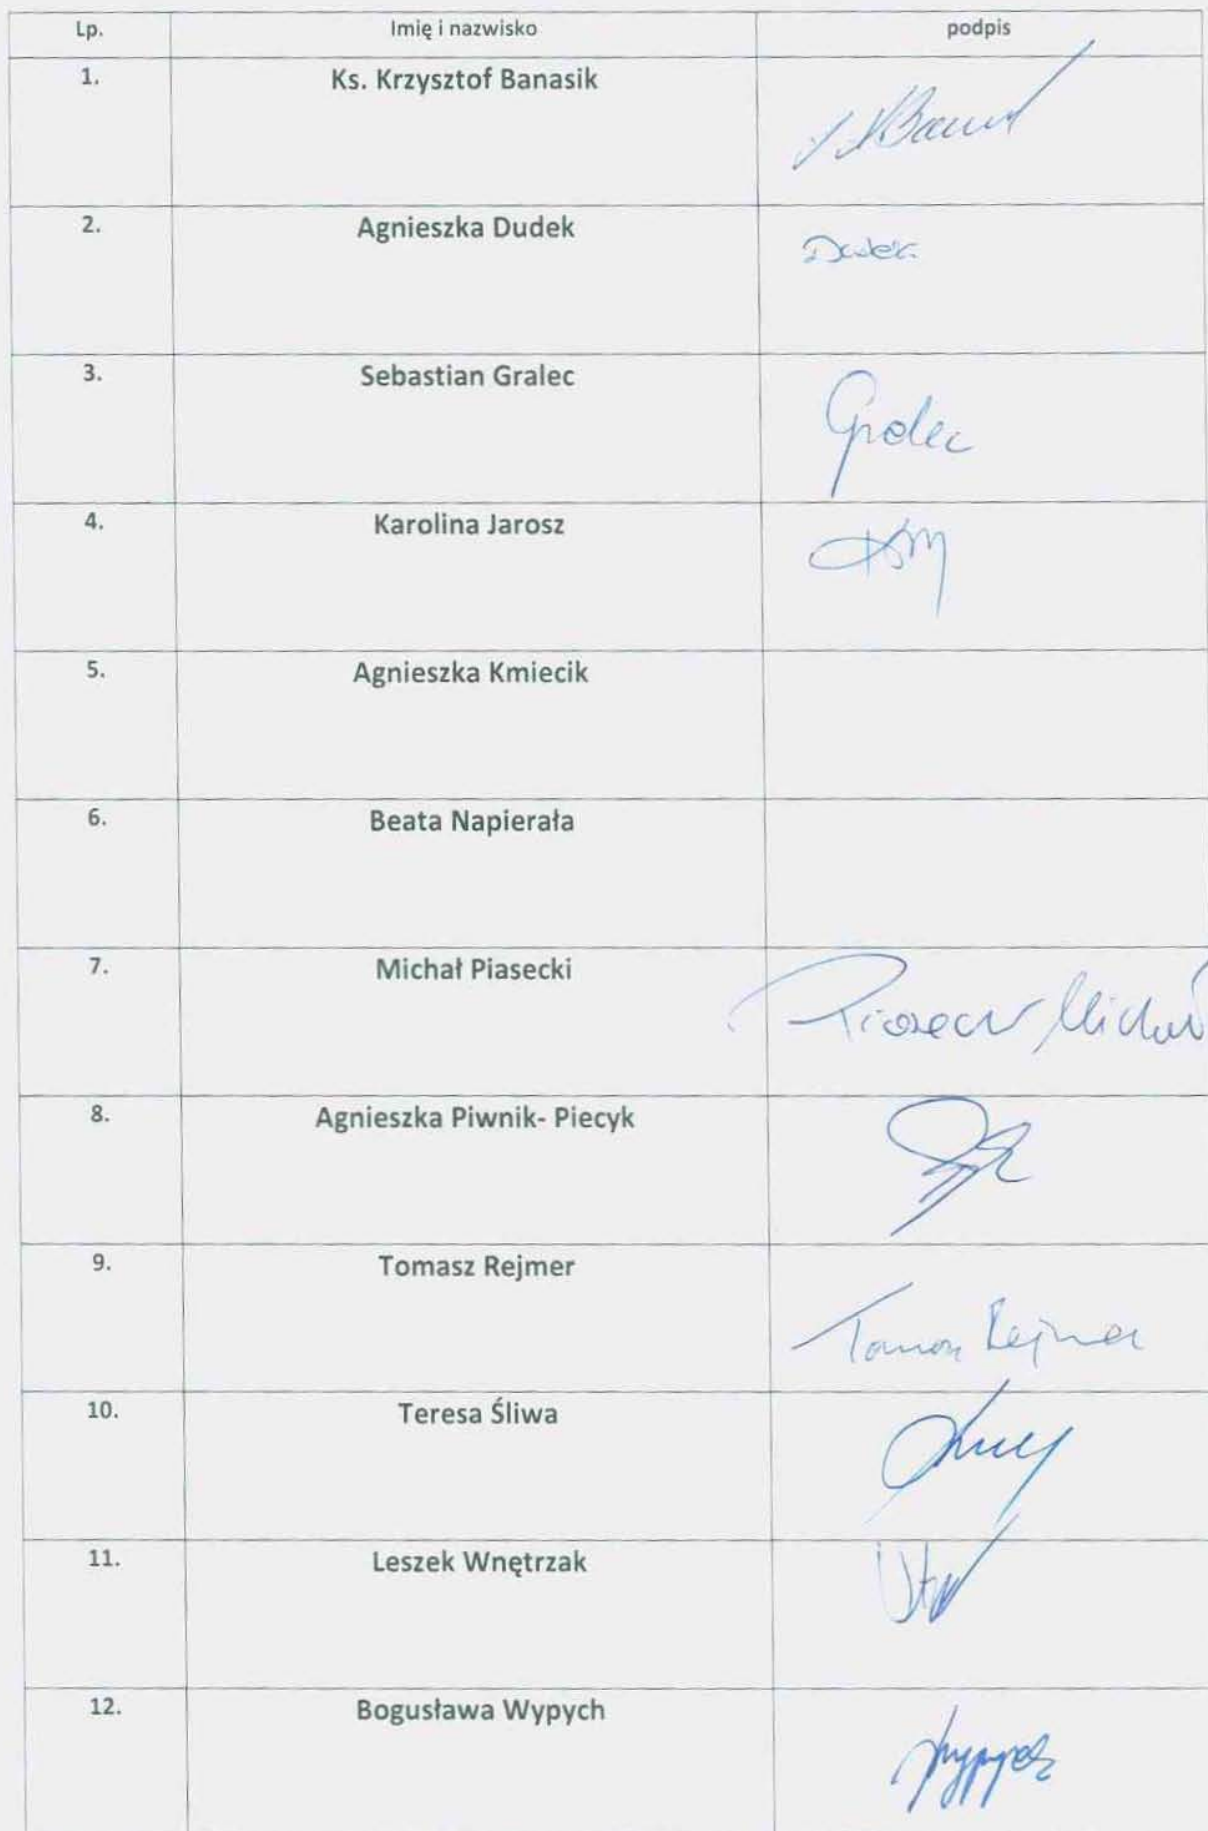 Lp. Imię i nazwisko podpis
1. Ks. Krzysztof Banasik
2. Agnieszka Dudek Dudek
3. Sebastian Gralec Gralec
4. Karolina Jarosz
5. Agnieszka Kmiecik
6. Beata Napierała
7. Michał Piasecki Piasecki Michał
8. Agnieszka Piwnik- Piecyk
9. Tomasz Rejmer Tomasz Rejmer
10. Teresa Śliwa
11. Leszek Wnętrzak
12. Bogusława Wypych Wypych